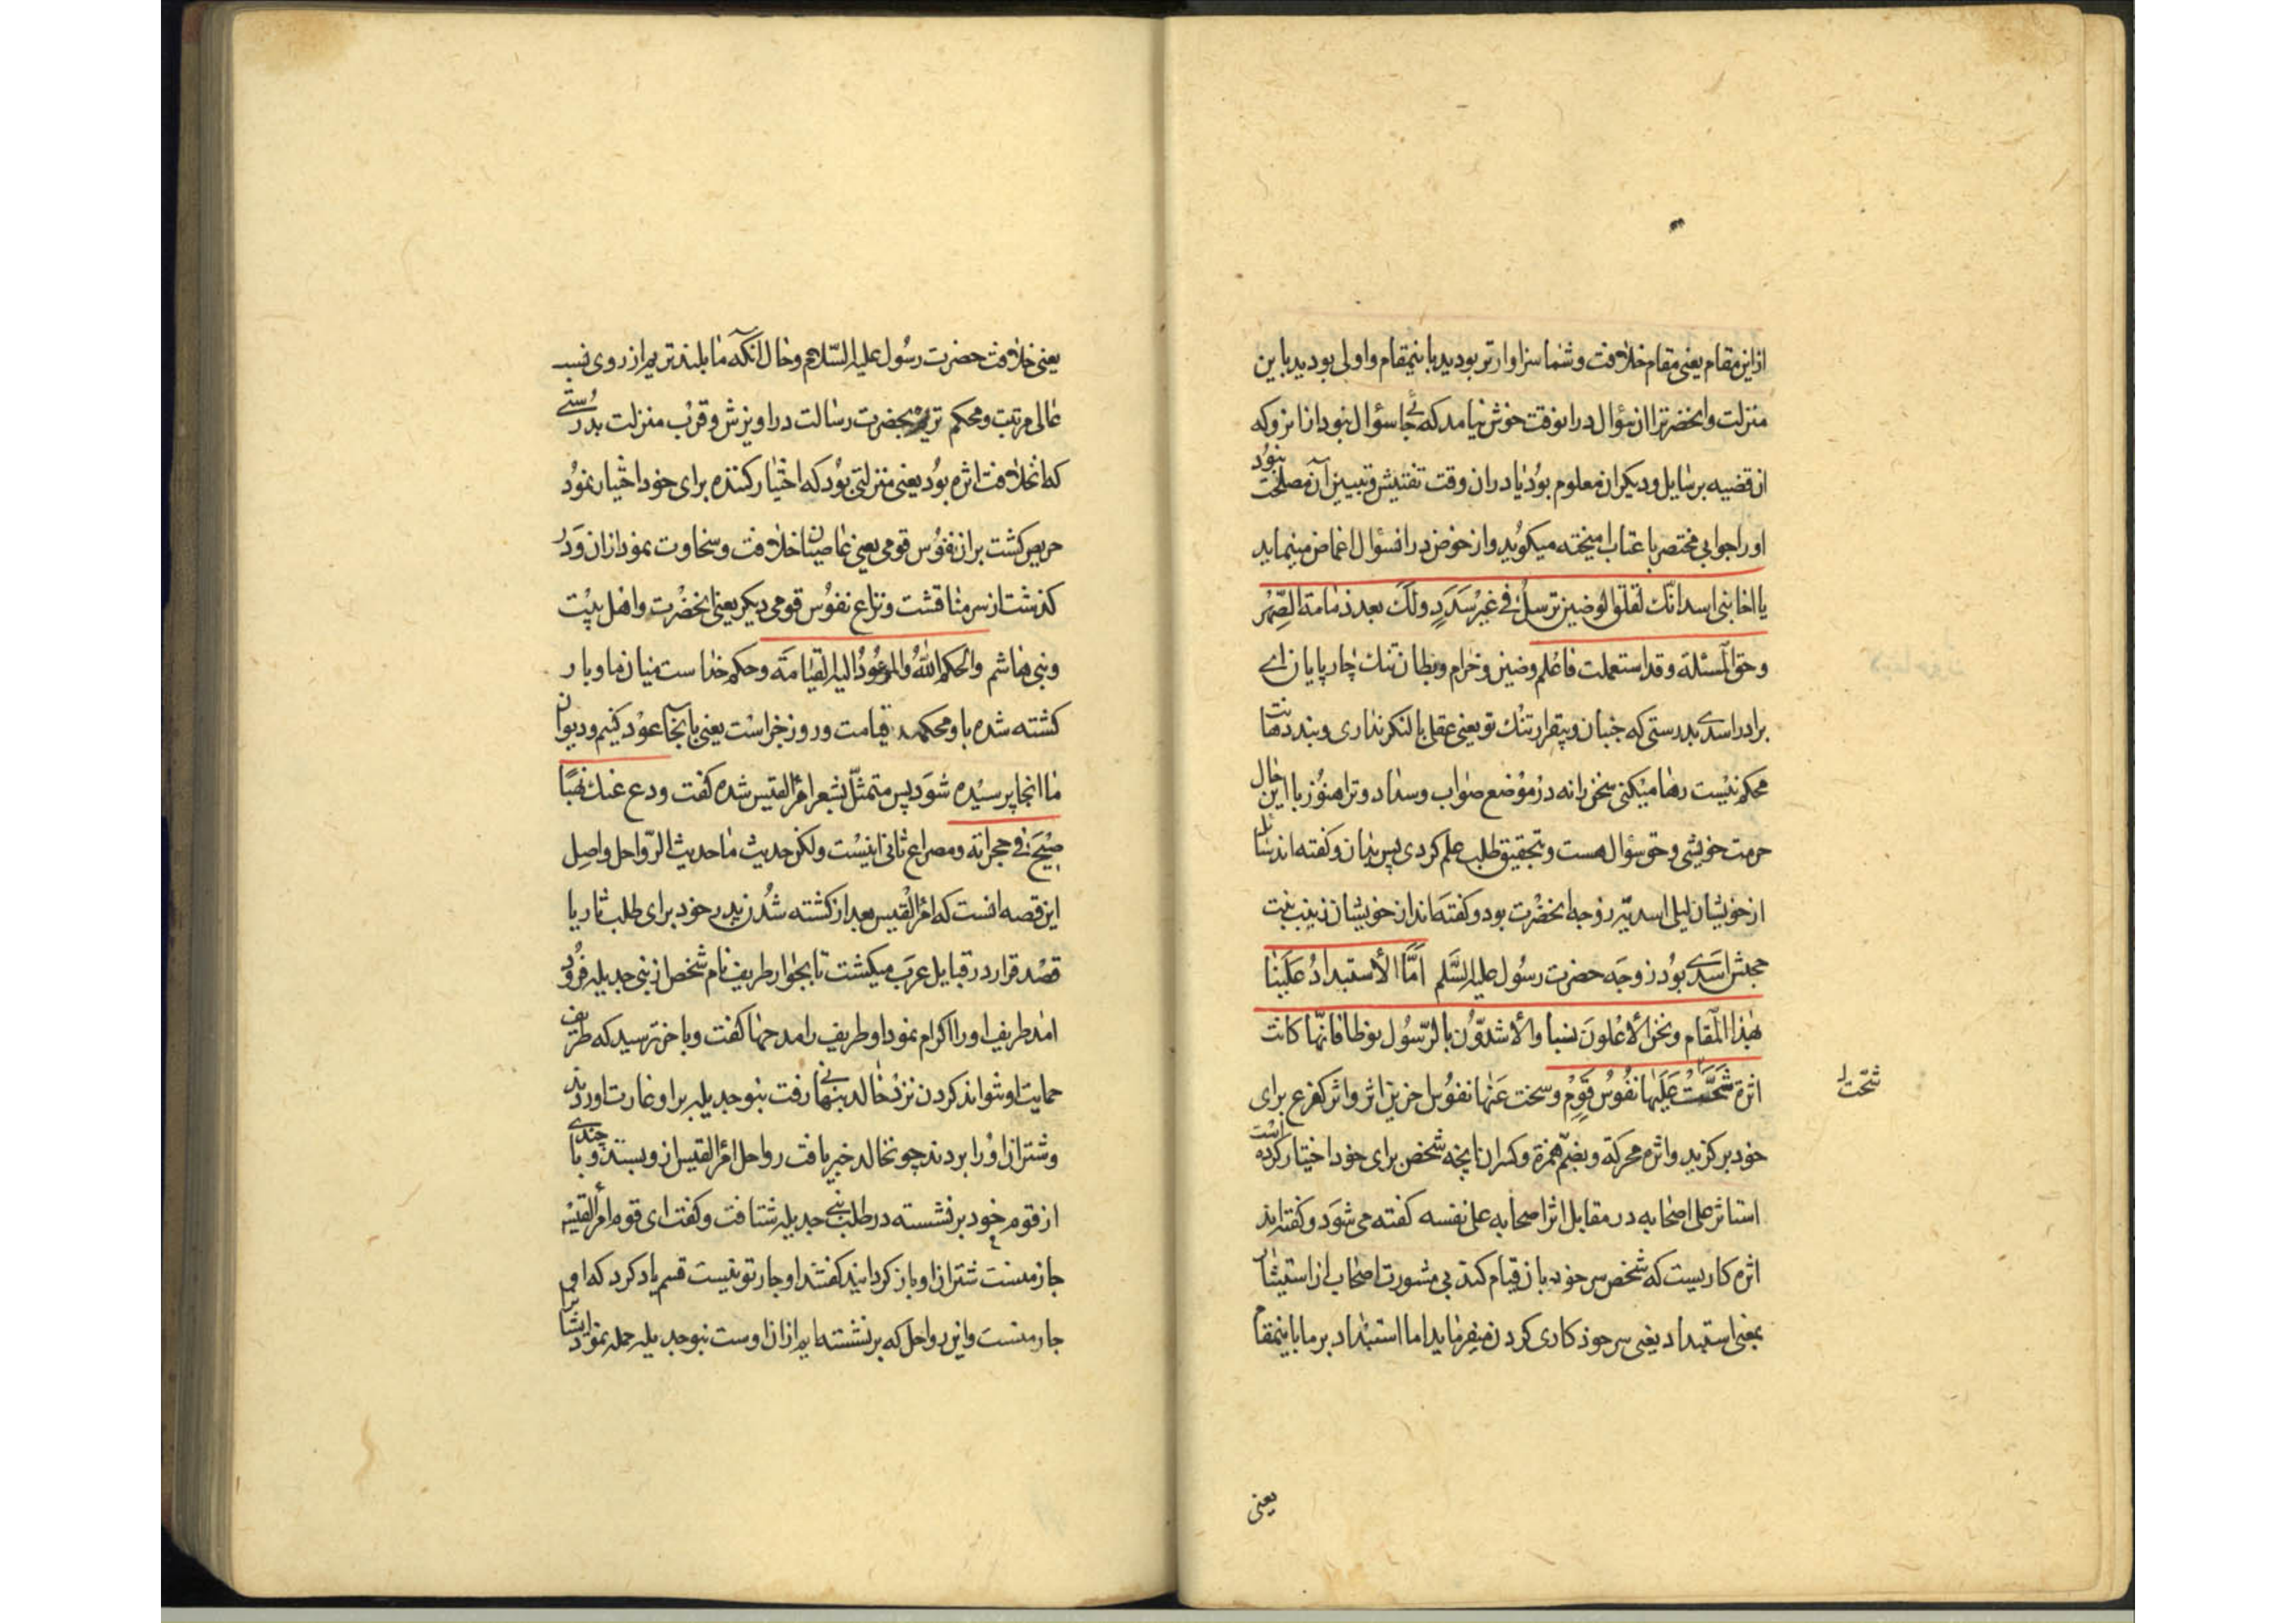 از این مقام یعنی مقام خلافت و شما سزاوارتر بودید باینمقام و اولی بودید باین
منزلت و انحضرترا ان سؤال در انوقت خوش نیامد که جا سؤال نبود از انرو که
از قضیه بر سایل و دیکران معلوم بود یا در ان وقت تفتیش و تبیین آن مصلحت نبود
او را جوابی مختصر با عتاب امیخته میکوید و از خوض در انسؤال اغماض مینماید
یا اخا بنی اسد انّک لقلق الوضین ترسل فی غیر سَدَدٍ ولک بعد ذمامة الصّهر
و حق المسئلة و قد استعملت فاعلم وضین و خزام و بطان تنك چارپایان اے
برادر اسدے بدرستی که جنبان و بیقرار تنْك تو یعنی عقل با لنکر نداری و بند دهانت
محکم نیست رها میکنی سخن را نه در موضع صواب و سداد و ترا هنوز با این حال
حرمت خویشی و حق سؤال هست و بتحقیق طلب علم کردی پس بدان و کفته اند سایل
از خویشان لیلی اسدیّه زوجه انحضرت بود و کفته اند از خویشان زینب بنت
جحش اسدے بود زوجه حضرت رسول علیه السّلم امّا الأستبدادُ عَلَینا
بهٰذا المقام و نحن الأعلون نسبا والأشدّون بالرّسول نوطا فانّها کانت
اثرة شَحَّتْ عَلَیها نفُوسُ قَومٍ و سخت عَنْها نفُوس اخرین اثر و اثر کفرع برای
شحّت
خود برکزید و اثره محرکة و بضم همزة و کسر ان انچه شخص برای خود اختیار کرده است
استاثر علی اصحابه در مقابل اثر اصحابه علی نفسه کفته می شود و کفته اند
اثره کاریست که شخص سر خود بان قیام کند بی مشورت اصحاب از استیثار
بمعنی استبداد یعنی سر خود کاری کردن میفرماید اما استبداد بر ما باینمقام
یعنی
یعنی خلافت حضرت رسول علیه السّلام و حال آنکه ما بلندتریم از روی نسب
عالی مرتبت و محکم تریم بحضرت رسالت در اویزش و قرب منزلت بدرستے
که انخلافت اثره بود یعنی منزلتی بود که اختیار کننده برای خود اختیار نمود
حریص کشت بر ان نفوس قومی یعنی غاصبان خلافت و سخاوت نمود از ان و در
کذشت از سر مناقشت و نزاع نفوس قومی دیکر یعنی انحضرت و اهل بیت
و بنی هاشم والحکم اللّٰه والمعود الیه القیامة و حکم خداست میان ما و باز
کشته شده باو محکمه قیامت و روز جزاست یعنی بآنجا عود کنیم و دیوان
ما انجا پرسیده شود پس متمثل بشعر امرء القیس شده کفت ودع عنك نهبًا
صِیْحَ فی حجراته و مصراع ثانی اینست ولکن حدیث ما حدیث الرّواحل و اصل
این قصه انست که امرء القیس بعد از کشته شدن پدر خود برای طلب ثار یا
قصد قرار در قبایل عرب میکشت تا بجوار طریف نام شخص از بنی جدیله فرود
امد طریف او را اکرام نمود او طریف را مدحها کفت و باخر ترسید که طریف
حمایت او نتواند کردن نزد خالد بنهانی رفت بنو جدیله بر او غارت اوردند
و شتران او را بردند چون خالد خبر یافت رواحل امرء القیس از و بستد و با چندے
از قوم خود بر نشسته در طلب بنی جدیله شتافت و کفت ای قوم امرء القیس
جار منست شتران او باز کردانید کفتند او جار تو نیست قسم یاد کرد که او
جار منست و این رواحل که بر نشسته ایم از ان اوست بنو جدیله حمله نمود ایشانرا